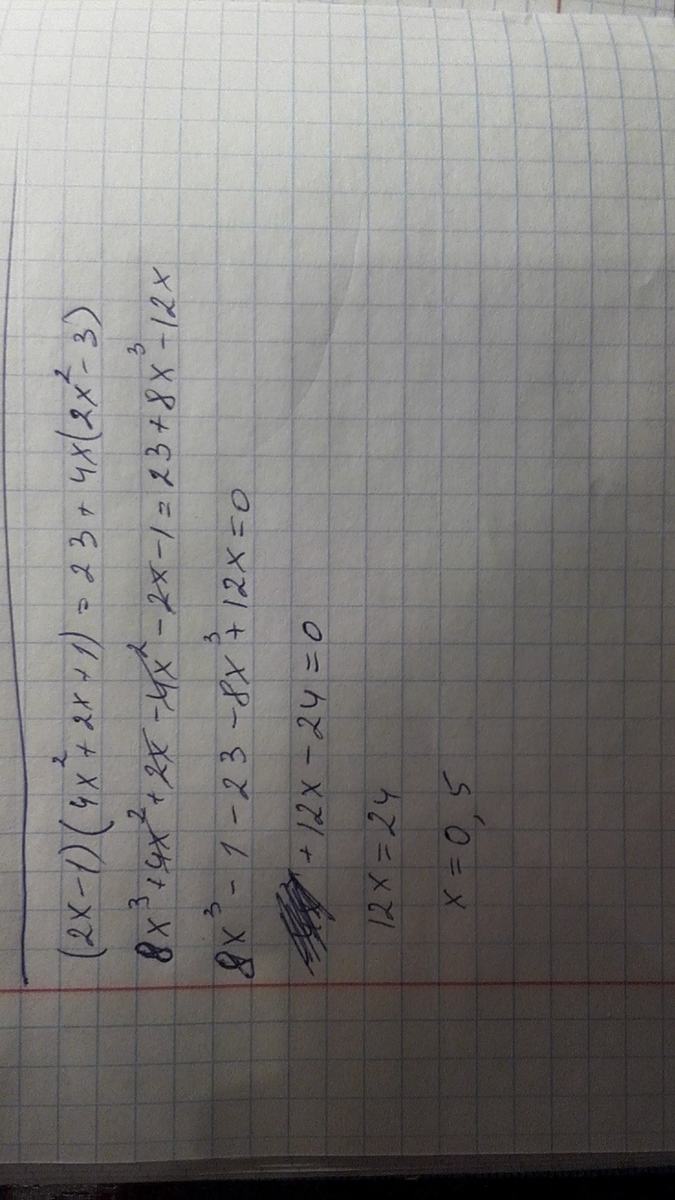 (2x-1)(4x²+2x+1)=23+4x(2x²-3)
8x³+4x²+2x-4x²-2x-1=23+8x³-12x
8x³-1-23-8x³+12x=0
+12x-24=0
12x=24
x=0,5